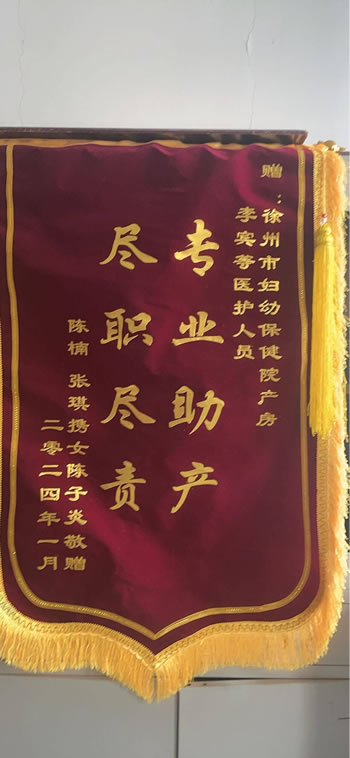 赠：徐州市妇幼保健院产房
李宾等医护人员
专业助产
尽职尽责
陈楠 张琪携女陈子炎敬赠
二零二四年一月